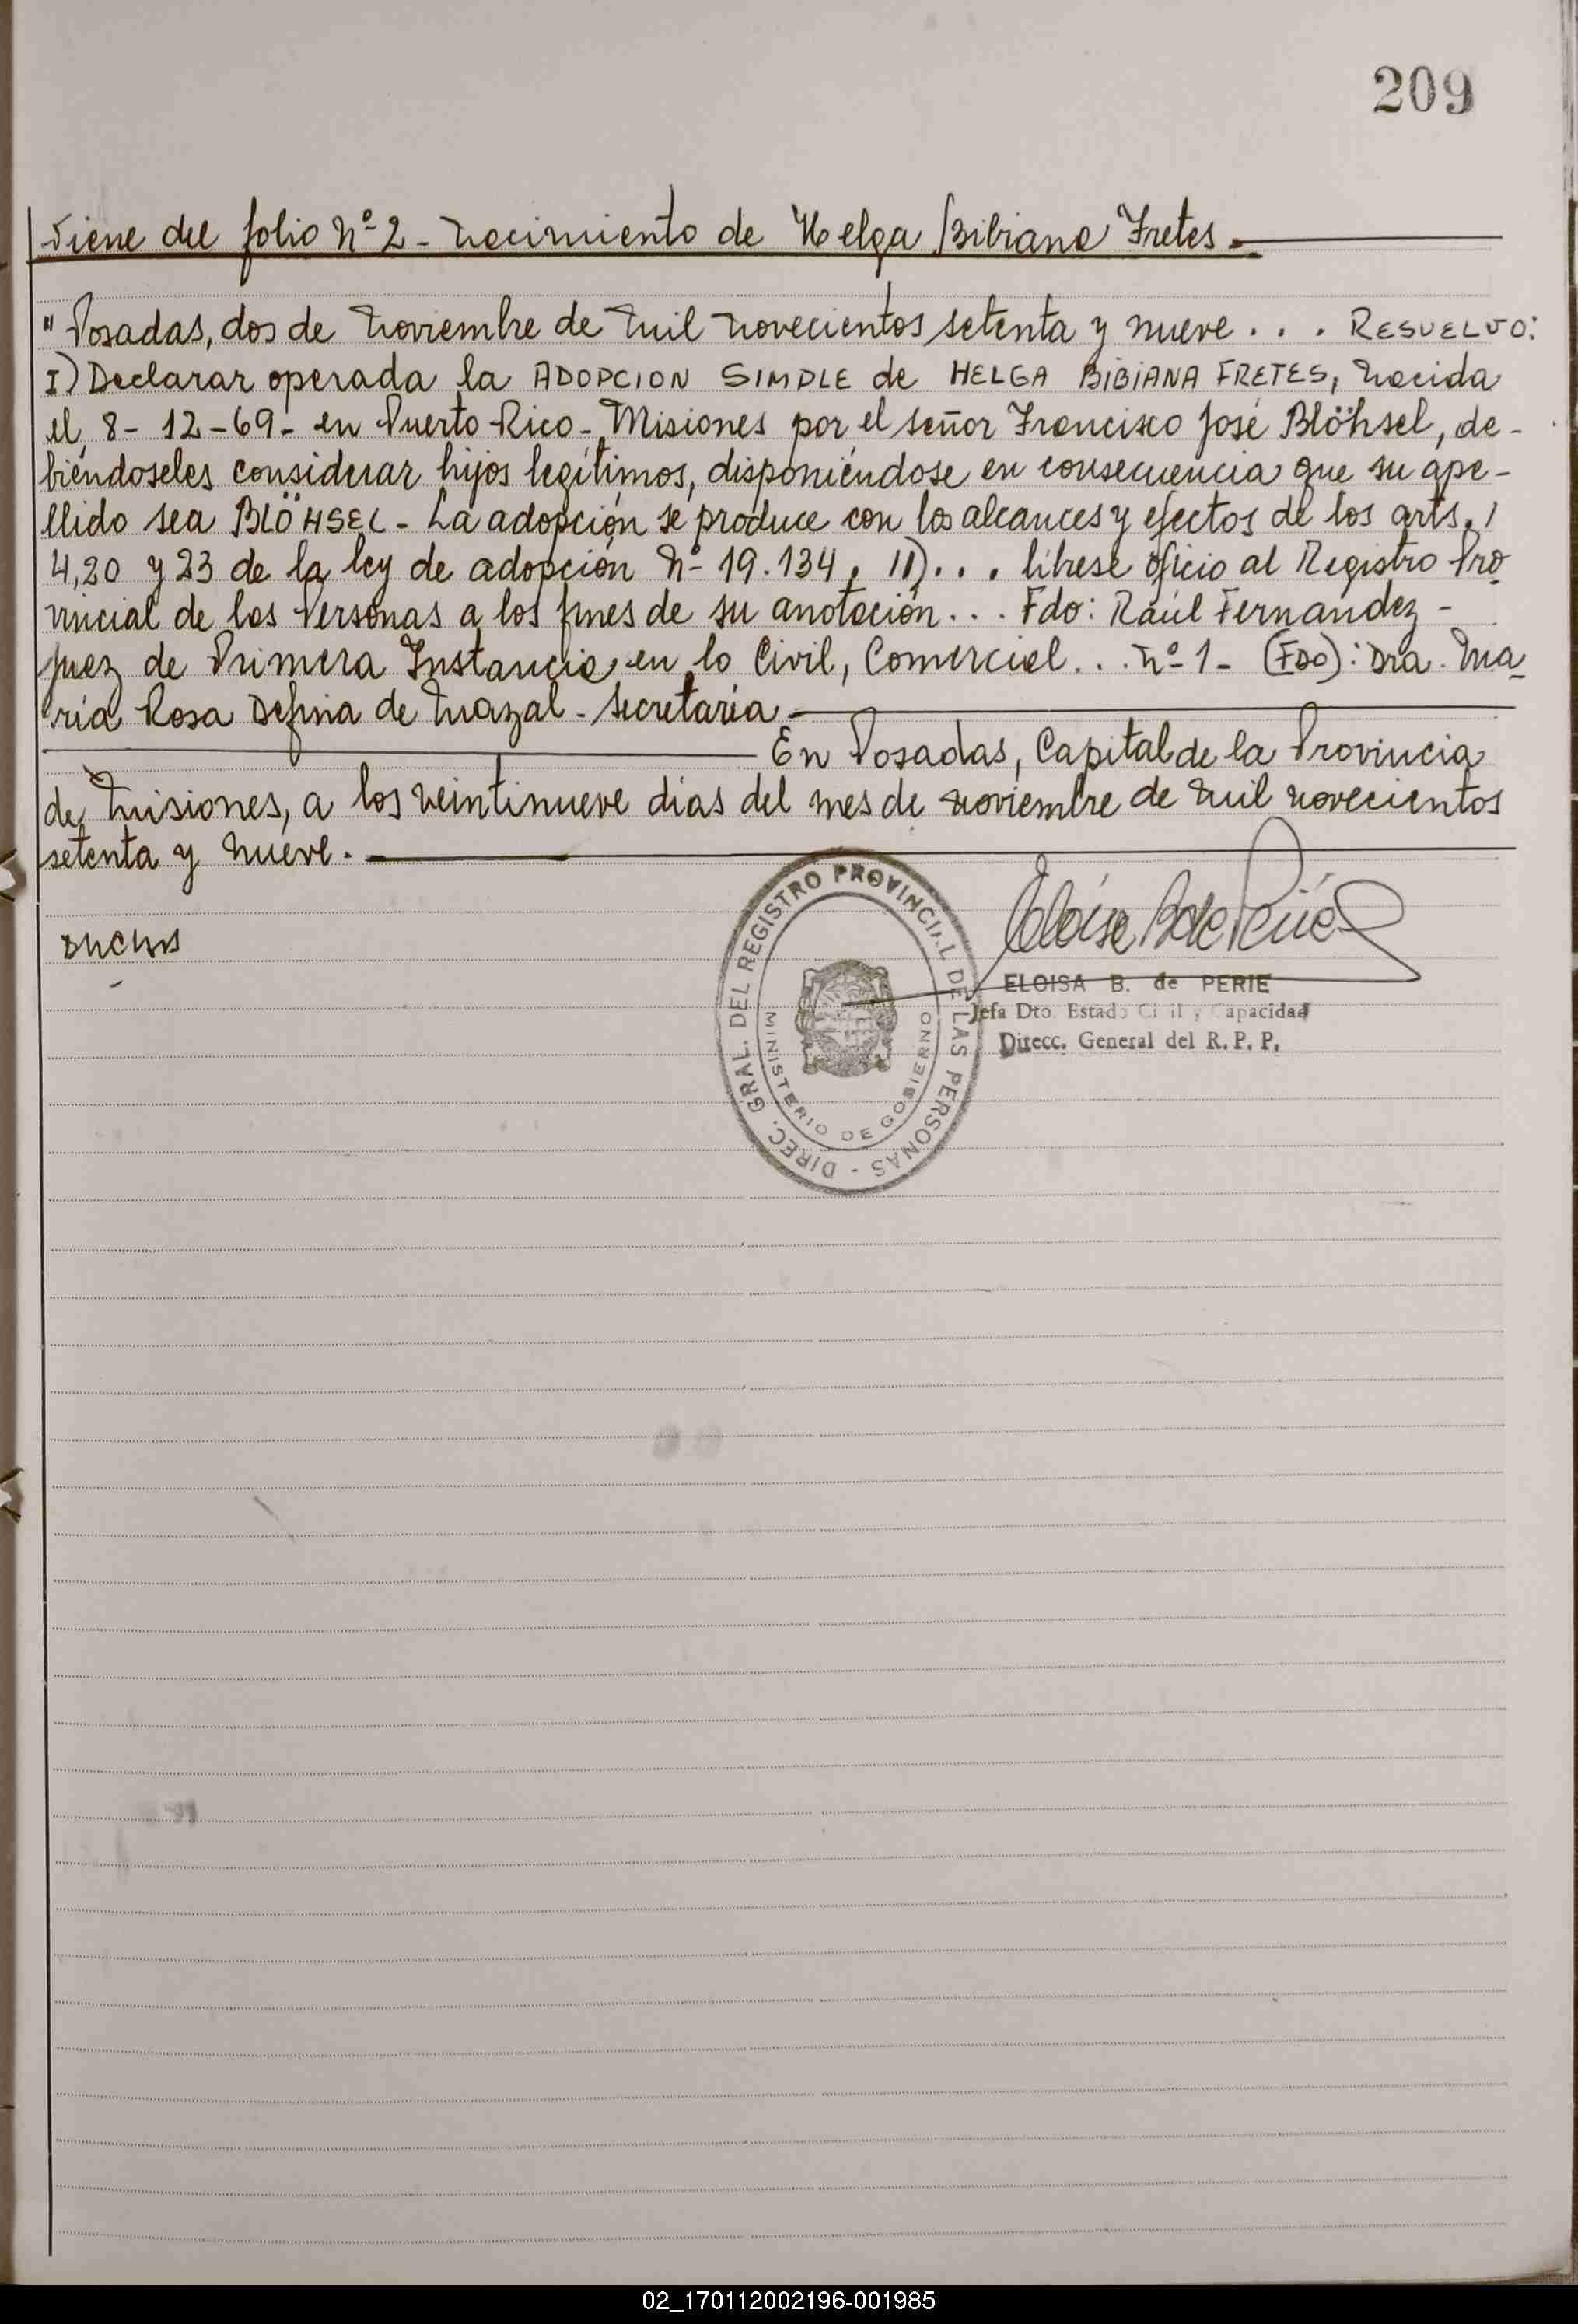 209
Viene del folio Nº 2 - Nacimiento de Helga Bibiana Fretes.-
"Posadas, dos de Noviembre de mil novecientos setenta y nueve . . . RESUELVO:
I) Declarar operada la ADOPCION SIMPLE de HELGA BIBIANA FRETES, nacida
el 8-12-69- en Puerto Rico- Misiones por el señor Francisco José Blöhsel, de-
biéndoseles considerar hijos legítimos, disponiéndose en consecuencia que su ape-
llido sea BLÖHSEL - La adopción se produce con los alcances y efectos de los arts. /
4, 20 y 23 de la ley de adopción Nº 19.134. II) . . . líbrese oficio al Registro Pro-
vincial de las Personas a los fines de su anotación . . . Fdo: Raúl Fernandez -
juez de Primera Instancia en lo Civil, Comercial . . . nº 1 - (FDO): Dra. Ma-
ría Rosa Defina de Mazal - secretaria -
En Posadas, Capital de la Provincia
de Misiones, a los veintinueve días del mes de noviembre de mil novecientos
setenta y nueve.-
ELOISA B. de PERIE
Jefa Dto. Estado Civil y Capacidad
Direcc. General del R. P. P.
DIREC. GRAL. DEL REGISTRO PROVINCIAL DE LAS PERSONAS -
MINISTERIO DE GOBIERNO
02_170112002196-001985